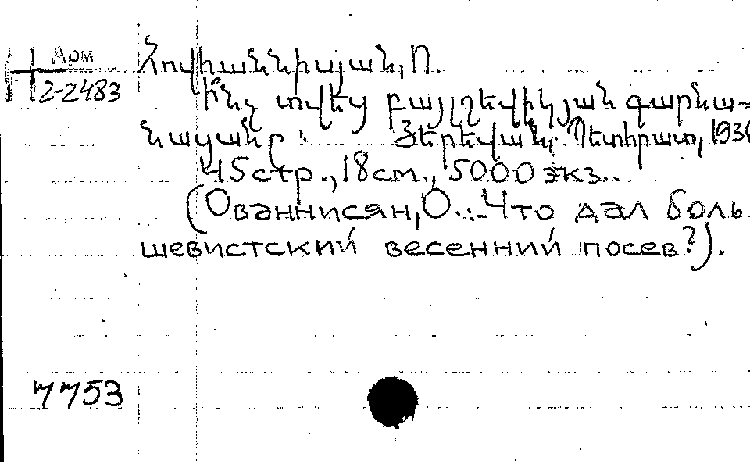 Арм
2-2483
Հովհաննիսյան, Ո.
Ի՞նչ տվեց բայլշեվիկյան գարնա-
նացանը: Յերեվան, Պետհրատ, 193
45 стр., 18 см., 5000 экз.
(Ованнисян, О. Что дал боль-
шевистский весенний посев?).
7753